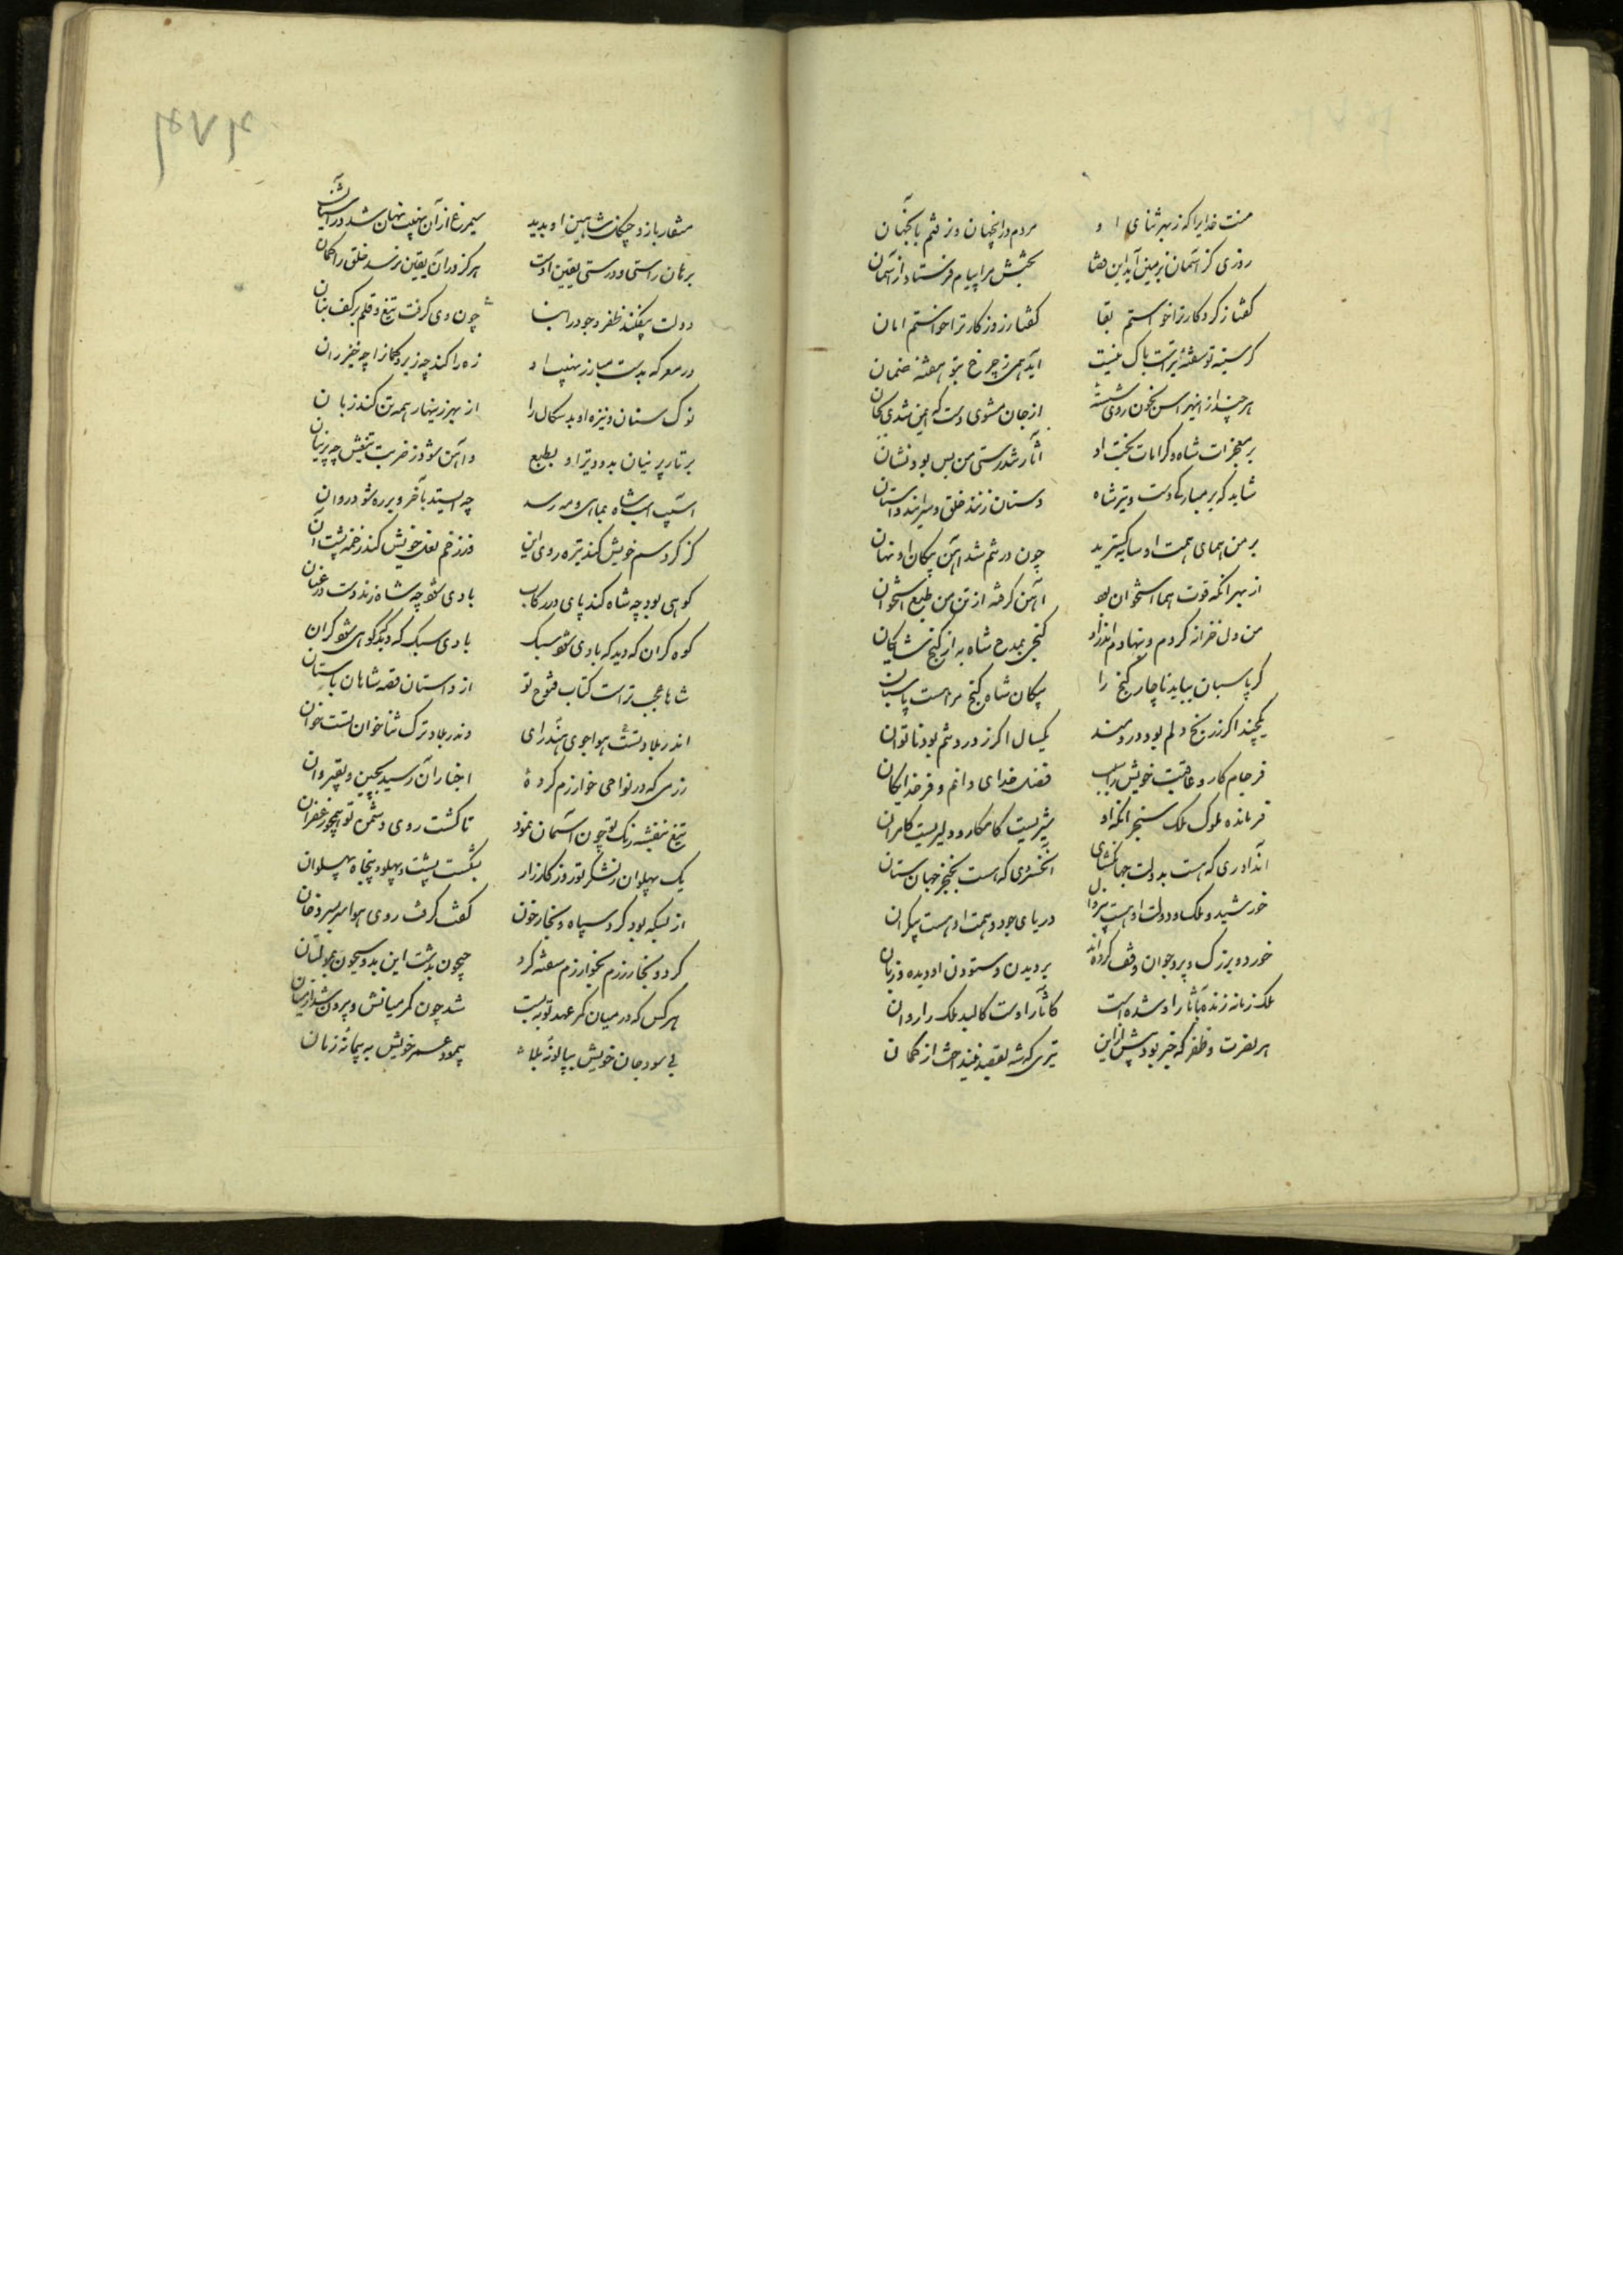 منت خدایرا که ز بهر ثنای او مردم در اینجهان و نرفتم بآنجهان
روزی کز آسمان بزمین آید این قضا بخشش مرا پیام فرستاد از آسمان
گفتا ز کردکار ترا خواستم بقا گفتا ز روزکار ترا خواستم امان
کر سینه تو سفته تیرست باک نیست آید همی ز چرخ بتو هفته ضمان
هر چند از بهر اسن بخون روی شسته از جان مشوی دست که ایمن شدی بجان
بر معجزات شاه و کرامات بخت او آثار تندرستی من بس بود نشان
شاید که بر مبارکی دست و تیر شاه دستان زنند خلق و سرایند داستان
بر من همای همت او سایه کسترید چون در تنم شد آهن پیکان او نهان
از بهر آنکه قوت هما استخوان بود آهن کرفته از تن من طبع استخوان
من دل خزانه کردم و بنهادم اندر او کنجی بمدح شاه به از کنج شایکان
کر پاسبان بباید ناچار کنج را پیکان شاه کنج مراهست پاسبان
یکچند اکر ز رنج دلم بود دردمند یکسال اکر ز درد تنم بود ناتوان
فرجام کار و عاقبت خویش را سبب فضل خدای دانم و فر خدایکان
فرمانده ملوک ملک سنجر آنکه او شیریست کامکار و دلیریست کامران
آنداوری که هست بدولت جهانکشای آنخسروی که هست بخنجر جهان ستان
خورشید ملک و دولت او هست بیزوال دریای جود و همت او هست بیکران
خورد و بزرک و پیر و جوان وقف کرده‌اند بر دیدن و ستودن او دیده و زبان
ملک زمانه زنده بآثار او شده است کآثار اوست کالبد ملک را روان
هر نصرت و ظفر که خبر بود پیش ازین تیری که شه بقصد بینداخت از کمان
منقار باز و چنکل شاهین او بدید سیمرغ از آن نهیب نهان شد در آشیان
برهان راستی و درستی یقین اوست هرکز در آن یقین نرسد خلق را کمان
دولت بیفکند ظفر و جود را بنا چون وی کرفت تیغ و قلم بر کف بنان
در معرکه بدست مبارز نهیب او زه را کند چه زیر و کمانرا چه خیزران
نوک سنان و نیزه او بدسکال را از بهر زینهار همه تن کند زبان
بر تار پرنیان بدود تیر او بطبع و آهن شود ز ضربت تیغش چه پرنیان
اسب شاه بماهی و مه رسد چه ایستد بآخر و بر ره شود روان
کز کرد سم خویش کند تیره روی این وز زخم نعل خویش کند رخنه پشت آن
کوهی بود چه شاه کند پای در رکاب بادی شود چه شاه زند دست در عنان
کوه کران که دید که بادی شود سبک بادی سبک که دید که کوهی شود کران
شاها عجب تر است کتاب فتوح تو از داستان قصه شاهان باستان
اندر بلاد تست هواجوی هند رای وندر بلاد ترک ثناخوان تست خوان
رزمی که در نواحی خوارزم کرده اخبار آن رسید بچین و بقیروان
تیغ بنفشه رنک تو چون آسمان نمود تا کشت روی دشمن تو همچو زعفران
یک پهلوان ز لشکر تو روز کارزار بشکست پشت و پهلو و پنجاه پهلوان
از بسکه بود کرد سپاه و بخار خون کفتی کرفت روی هوا سربسر دخان
کرد و بخار رزم بخوارزم سفته کرد جیحون بدشت این بدو سیحون بمولتان
هر کس که در میان کمر عهد تو نبست شد چون کمر میانش و بیرون شد از میان
پیمود عمر خویش به پیمانه زمان